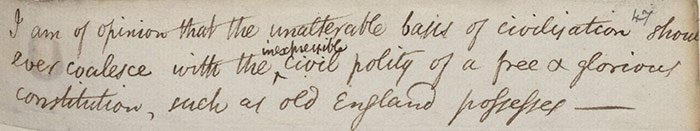 I am of opinion that the unalterable basis of civilisation 47 shou
ever coalesce with the inexpressible civil polity of a free & glorious
constitution, such as old England possesses —